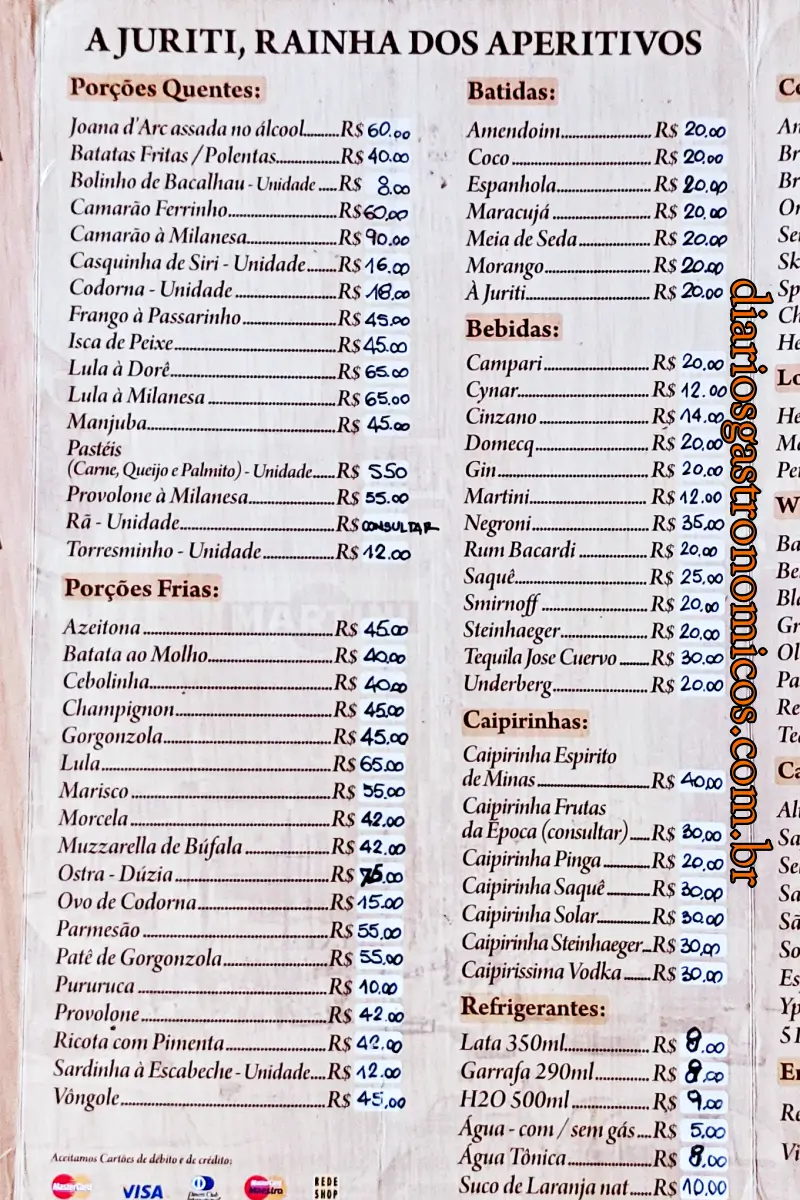 A JURITI, RAINHA DOS APERITIVOS
Porções Quentes:
Joana d'Arc assada no álcool.........R$ 60,00
Batatas Fritas / Polentas................R$ 40.00
Bolinho de Bacalhau - Unidade .....R$ 8,00
Camarão Ferrinho...........................R$ 60,00
Camarão à Milanesa.......................R$ 90.00
Casquinha de Siri - Unidade.......R$ 16.00
Codorna - Unidade .........................R$ 18,00
Frango à Passarinho.......................R$ 45,00
Isca de Peixe........................................R$ 45.00
Lula à Dorê.........................................R$ 65.00
Lula à Milanesa ................................R$ 65.00
Manjuba...............................................R$ 45.00
Pastéis
(Carne, Queijo e Palmito) - Unidade.....R$ 5,50
Provolone à Milanesa......................R$ 55.00
Rã - Unidade......................................R$ CONSULTAR
Torresminho - Unidade...................R$ 12.00
Porções Frias:
Azeitona ...............................................R$ 45.00
Batata ao Molho................................R$ 40,00
Cebolinha..............................................R$ 40,00
Champignon.......................................R$ 45.00
Gorgonzola..........................................R$ 45.00
Lula..........................................................R$ 65.00
Marisco ..................................................R$ 55,00
Morcela ..................................................R$ 42.00
Muzzarella de Búfala ......................R$ 42.00
Ostra - Dúzia......................................R$ 75.00
Ovo de Codorna.................................R$ 15.00
Parmesão ..............................................R$ 55,00
Patê de Gorgonzola..........................R$ 55.00
Pururuca ..............................................R$ 10,00
Provolone..............................................R$ 42.00
Ricota com Pimenta.........................R$ 42.00
Sardinha à Escabeche - Unidade....R$ 12.00
Vôngole...................................................R$ 45,00
Aceitamos Cartões de débito e de crédito:
MasterCard
VISA
Diners Club
MasterCard
Maestro
REDE
SHOP
Batidas:
Amendoim......................R$ 20,00
Coco ..................................R$ 20,00
Espanhola.......................R$ 20,00
Maracujá ........................R$ 20,00
Meia de Seda.................R$ 20.00
Morango..........................R$ 20.00
À Juriti..............................R$ 20.00
Bebidas:
Campari.........................R$ 20.00
Cynar................................R$ 12.00
Cinzano ..........................R$ 14.00
Domecq...........................R$ 20,00
Gin.....................................R$ 20.00
Martini............................R$ 12.00
Negroni............................R$ 35.00
Rum Bacardi .................R$ 20,00
Saquê.................................R$ 25,00
Smirnoff ..........................R$ 20,00
Steinhaeger.....................R$ 20.00
Tequila Jose Cuervo .......R$ 30.00
Underberg.......................R$ 20.00
Caipirinhas:
Caipirinha Espirito
de Minas ...........................R$ 40,00
Caipirinha Frutas
da Época (consultar).....R$ 30,00
Caipirinha Pinga ............R$ 20,00
Caipirinha Saquê ...........R$ 30,00
Caipirinha Solar.............R$ 30,00
Caipirinha Steinhaeger..R$ 30,00
Caipiríssima Vodka ......R$ 30.00
Refrigerantes:
Lata 350ml.....................R$ 8.00
Garrafa 290ml..............R$ 8,00
H2O 500ml ...................R$ 9,00
Água - com / sem gás....R$ 5,00
Água Tônica...................R$ 8,00
Suco de Laranja nat.....R$ 10,00
diariosgastronomicos.com.br